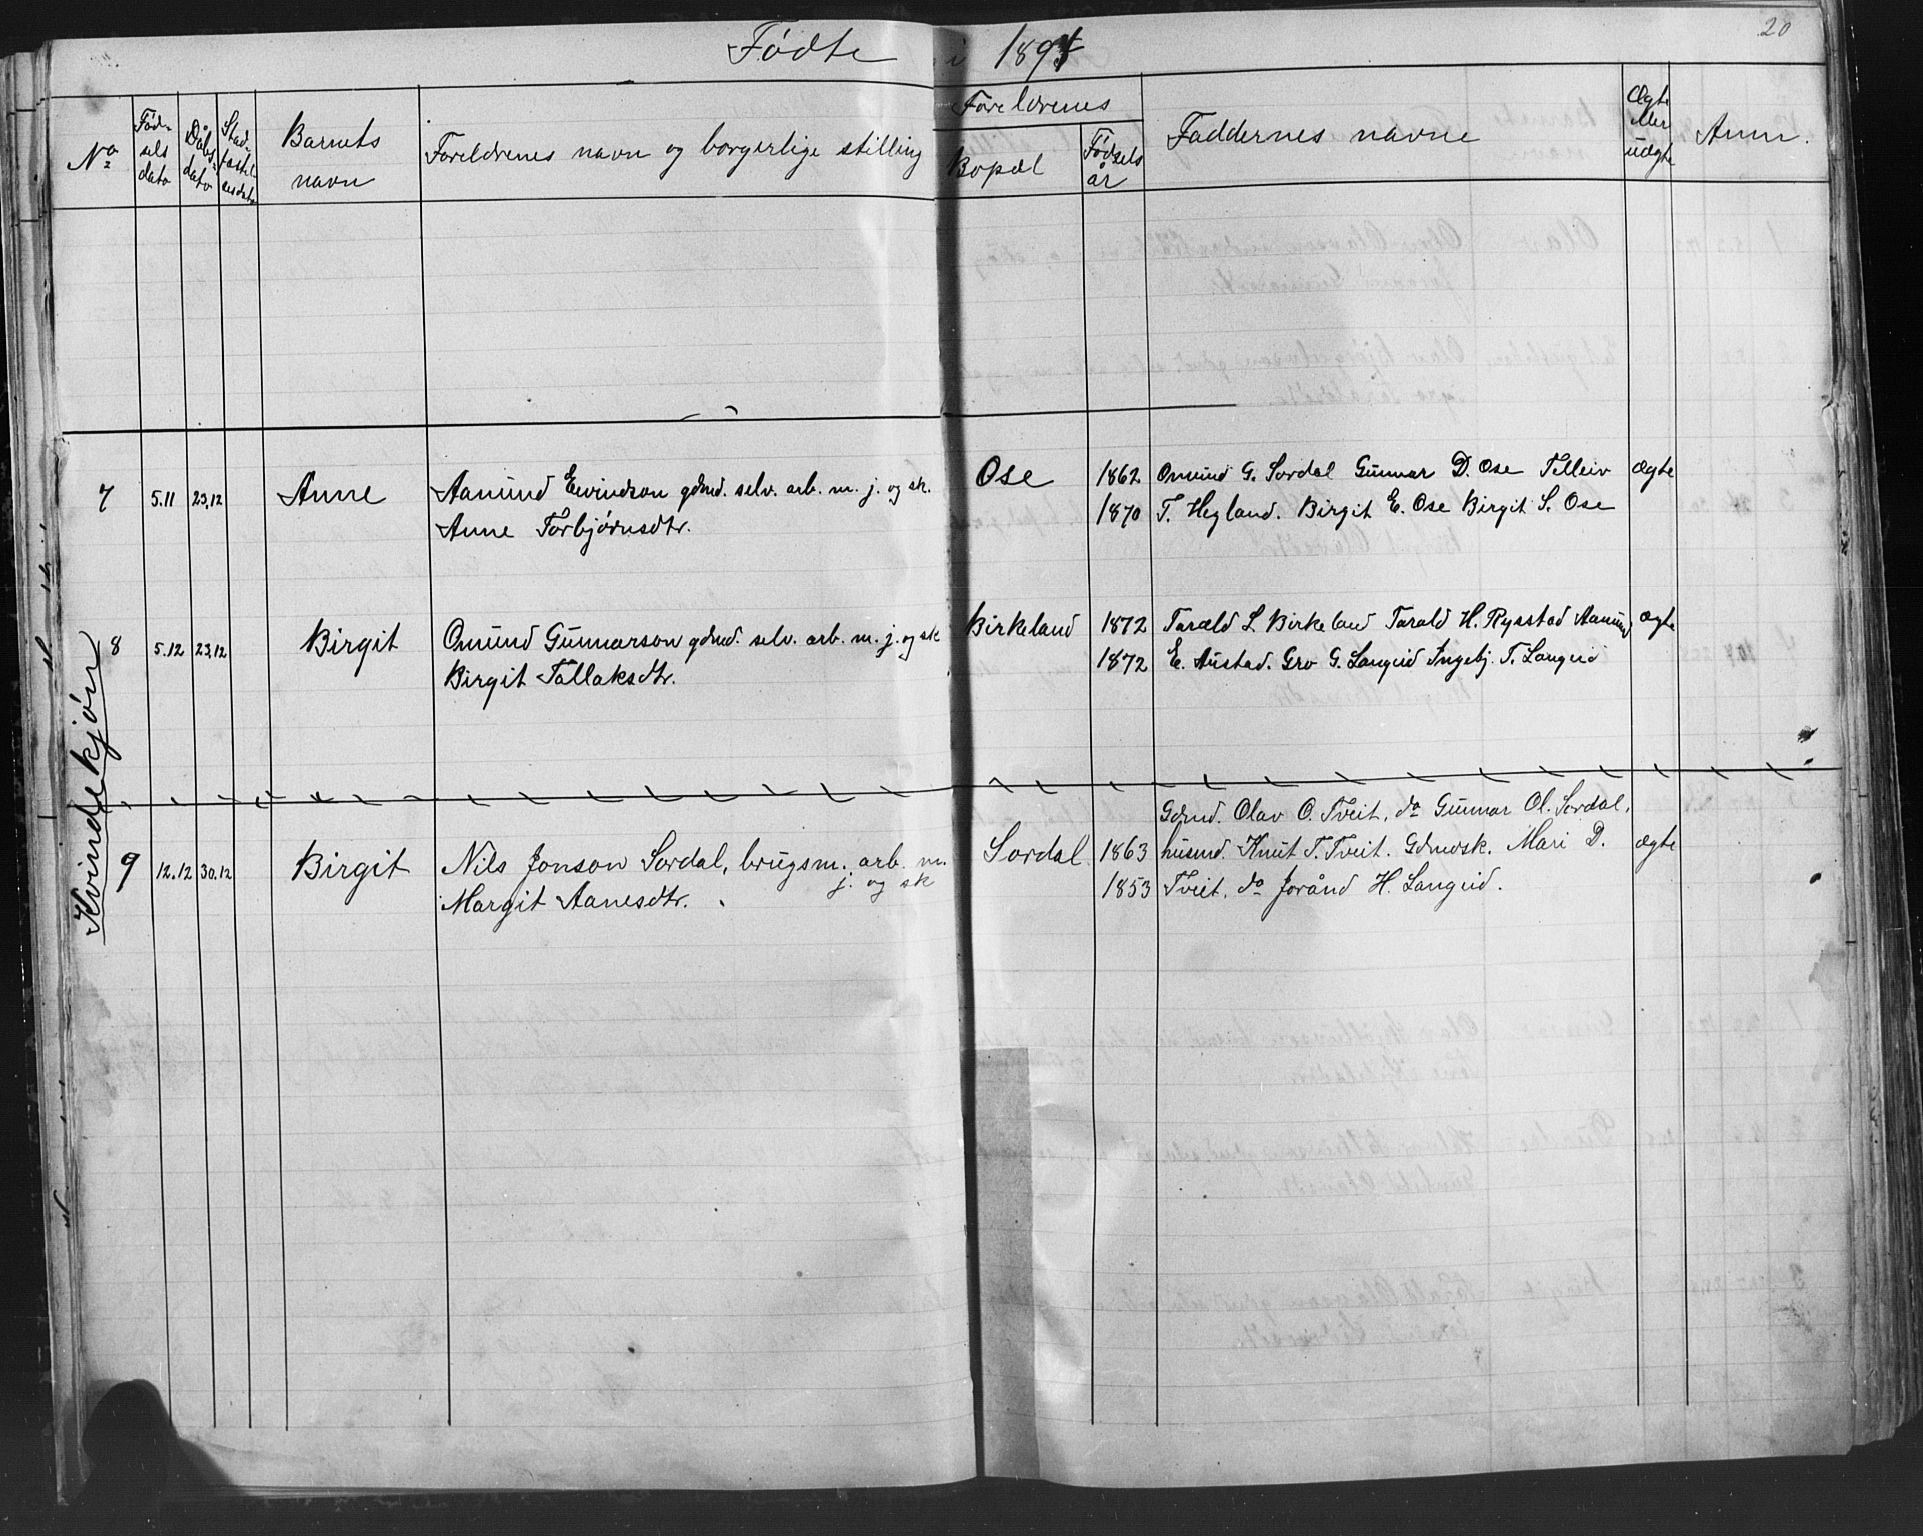 20
Fødte i 1894
No
Fød-
sels
dato
Dåbs-
dato
Stad-
fæstel-
sesdato
Barnets
navn
Foreldrenes navn og borgerlige stilling
Foreldrenes
Bopæl
Fødsels
år
Faddernes navne
Ægte
eller
uægte
Anm.
Kvindekjøn
7 5.11 23.12 Anne Aanund Eivindson gdmd. selv. arb. m. j. og sk. Ose 1862 Omund G. Sordal Gunnar D. Ose Telleiv ægte
Anne Torbjørnsdtr. 1870 T. Hegland. Birgit E. Ose Birgit S. Ose
8 5.12 23.12 Birgit Omund Gunnarson gdmd. selv. arb. m. j. og sk Birkeland 1872 Tarald L. Birkeland Tarald H. Rysstad Aanund ægte
Birgit Tallaksdtr. 1872 E. Austad. Gro G. Langeid Ingebj. T. Langeid
Gdmd. Olav O. Tveit, do Gunnar Ol. Sordal,
9 12.12 30.12 Birgit Nils Jonson Sordal, brugsm. arb. m. Sordal 1863 husmd. Knut T. Tveit. Gdmdsk. Mari D. ægte
j. og sk
Margit Aanesdtr. 1853 Tveit, do Jorånd H. Langeid.